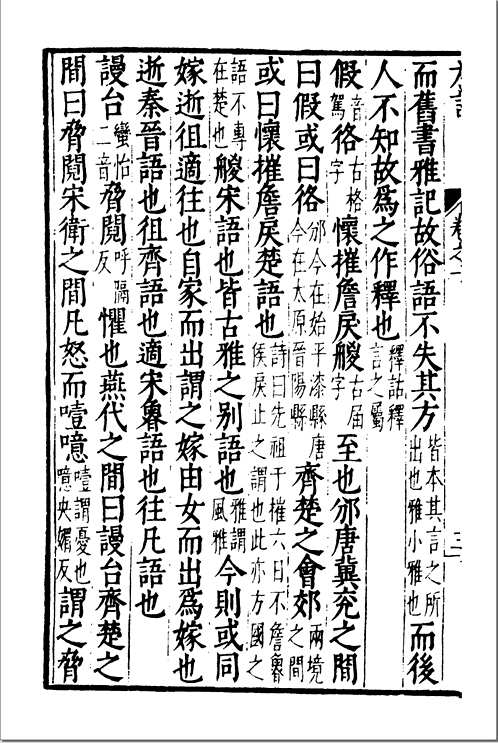 而舊書雅記故俗語不失其方皆本其言之所出也雅小雅也而後
人不知故爲之作釋也釋詁釋言之屬
假音駕佫古格字懷摧詹戾艐古届字至也邠唐冀兖之間
曰假或曰佫邠今在始平漆縣唐今在太原晉陽縣齊楚之會郊兩境之間
或曰懷摧詹戾楚語也詩曰先祖于摧六日不詹魯侯戾止之謂也此亦方國之
語不專在楚也艐宋語也皆古雅之别語也雅謂風雅今則或同
嫁逝徂適往也自家而出謂之嫁由女而出爲嫁也
逝秦晉語也徂齊語也適宋魯語也往凡語也
謾台蠻怡二音脅鬩呼隔反懼也燕代之間曰謾台齊楚之
間曰脅鬩宋衛之間凡怒而噎噫噎謂憂也噫央媚反謂之脅